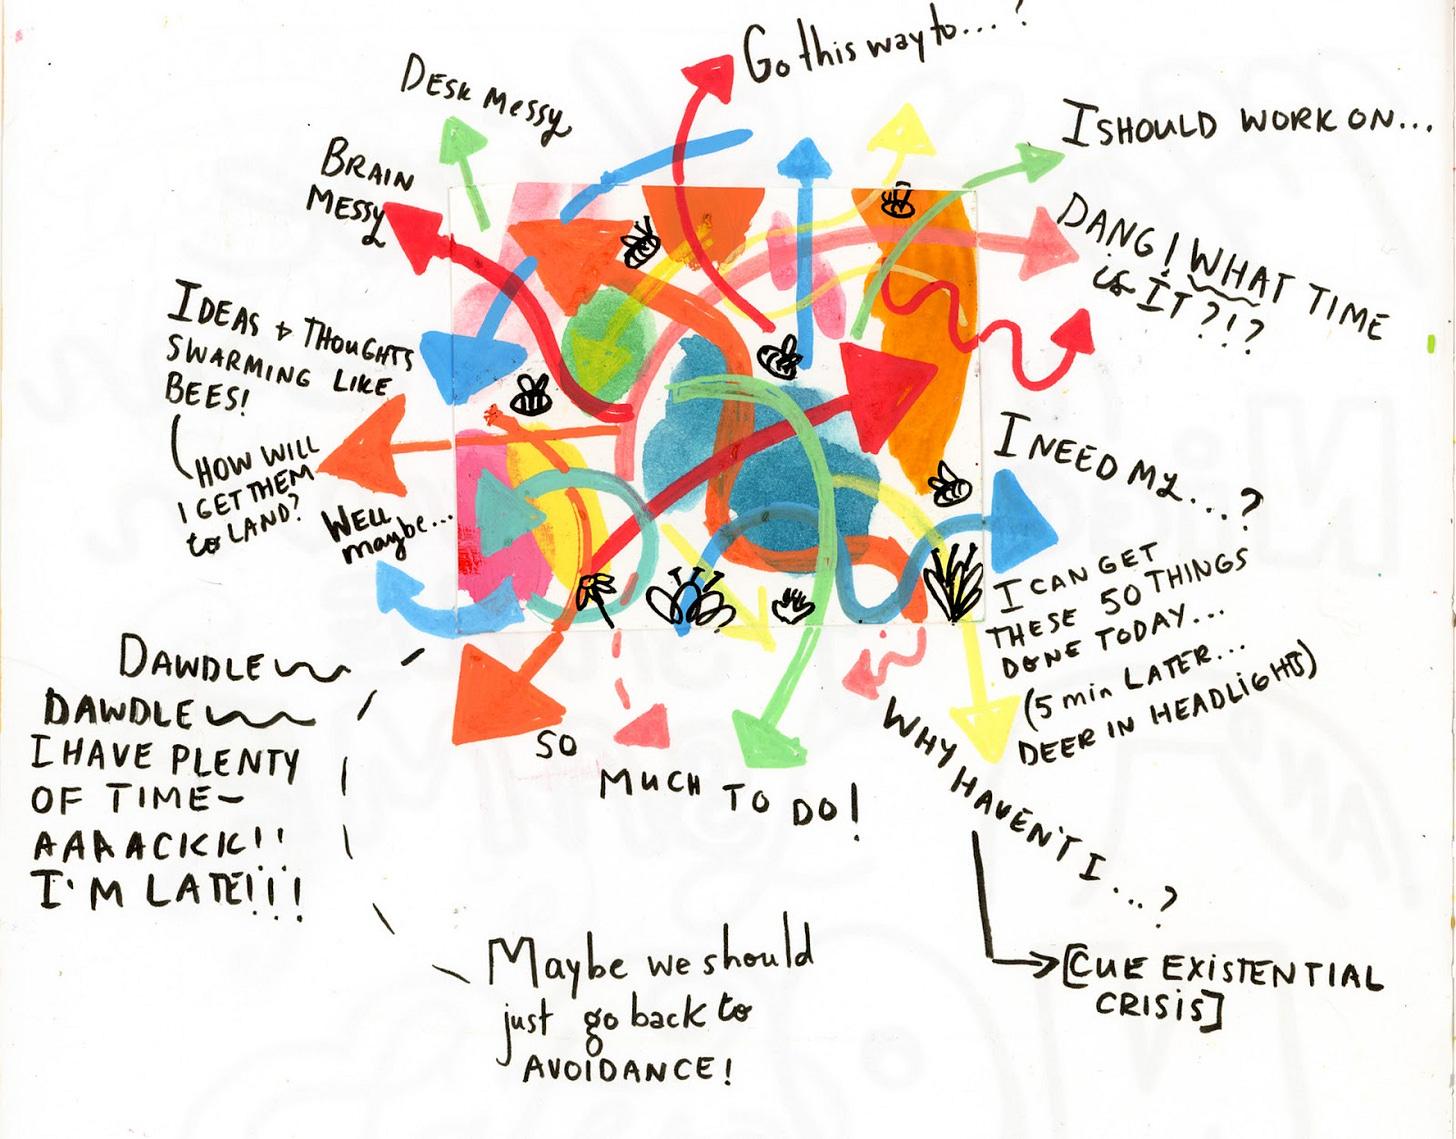 Go this way to... ?
DESK MESSY
I SHOULD WORK ON...
BRAIN
MESSY
DANG! WHAT TIME
is IT?!?
IDEAS + THOUGHTS
SWARMING LIKE
BEES!
HOW WILL
I GET THEM
to LAND?
WELL
maybe...
I NEED MY...?
I CAN GET
THESE 50 THINGS
DONE TODAY...
(5 min LATER...
DEER IN HEADLIGHTS)
DAWDLE
DAWDLE
I HAVE PLENTY
OF TIME-
AAAACKK!!
I'M LATE!!!
SO
MUCH TO DO!
WHY HAVEN'T I...?
[CUE EXISTENTIAL
CRISIS]
Maybe we should
just go back to
AVOIDANCE!